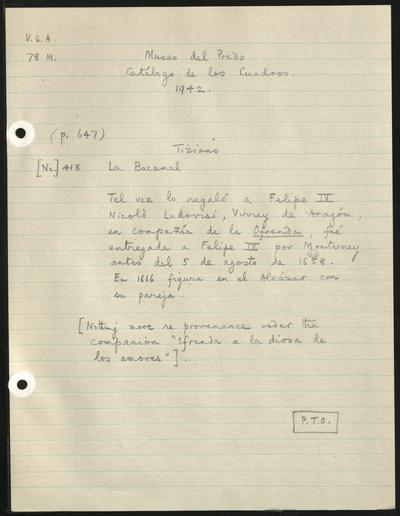 V. & A.
78 M.
Museo del Prado
Catálogo de los Cuadros.
1942.
(p. 647)
Tiziano
[No.] 418 La Bacanal
Tal vez lo regaló a Felipe IV
Nicolò Ludovisi, Virrey de Aragón;
en compañía de la Ofrenda, fué
entregada a Felipe IV por Monterrey
antes del 5 de agosto de 1638.
En 1666 figura en el Alcázar con
su pareja.
[Nothing more re provenance under the
companion "Ofrenda a la diosa de
los amores"].
P.T.O.